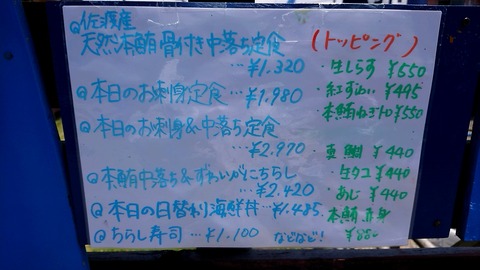 @佐渡産
天然本鮪骨付き中落ち定食
…¥1.320
@本日のお刺身定食…¥1.980
@本日のお刺身&中落ち定食
…¥2.970
@本鮪中落ち&ずわいがにちらし
…¥2.420
@本日の日替り海鮮丼…¥1.485
@ちらし寿司…¥1.100
(トッピング)
・生しらす ¥550
・紅ずわい ¥495
・本鮪ねぎトロ ¥550
・真鯛 ¥440
・生タコ ¥440
・あじ ¥440
本鮪赤身
などなど!